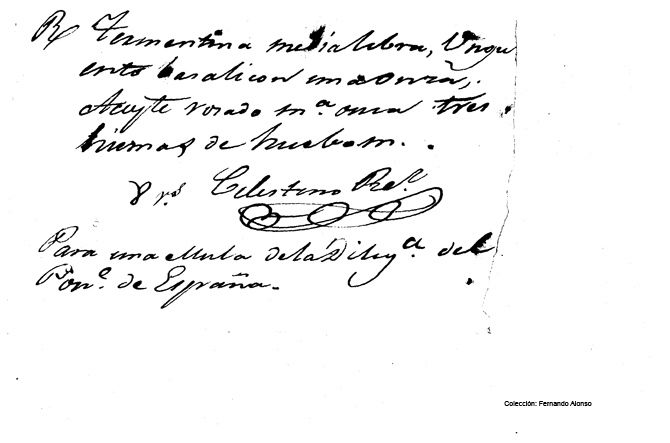 R Trementina media libra, Ungu
ento basalicon una onza,
Aceyte rosado m.ª onza tres
hiemas de huebo m.
8 r.s Celestino
Para una Mula de la Dilig.ª del
Pon.e de España.
Colección: Fernando Alonso